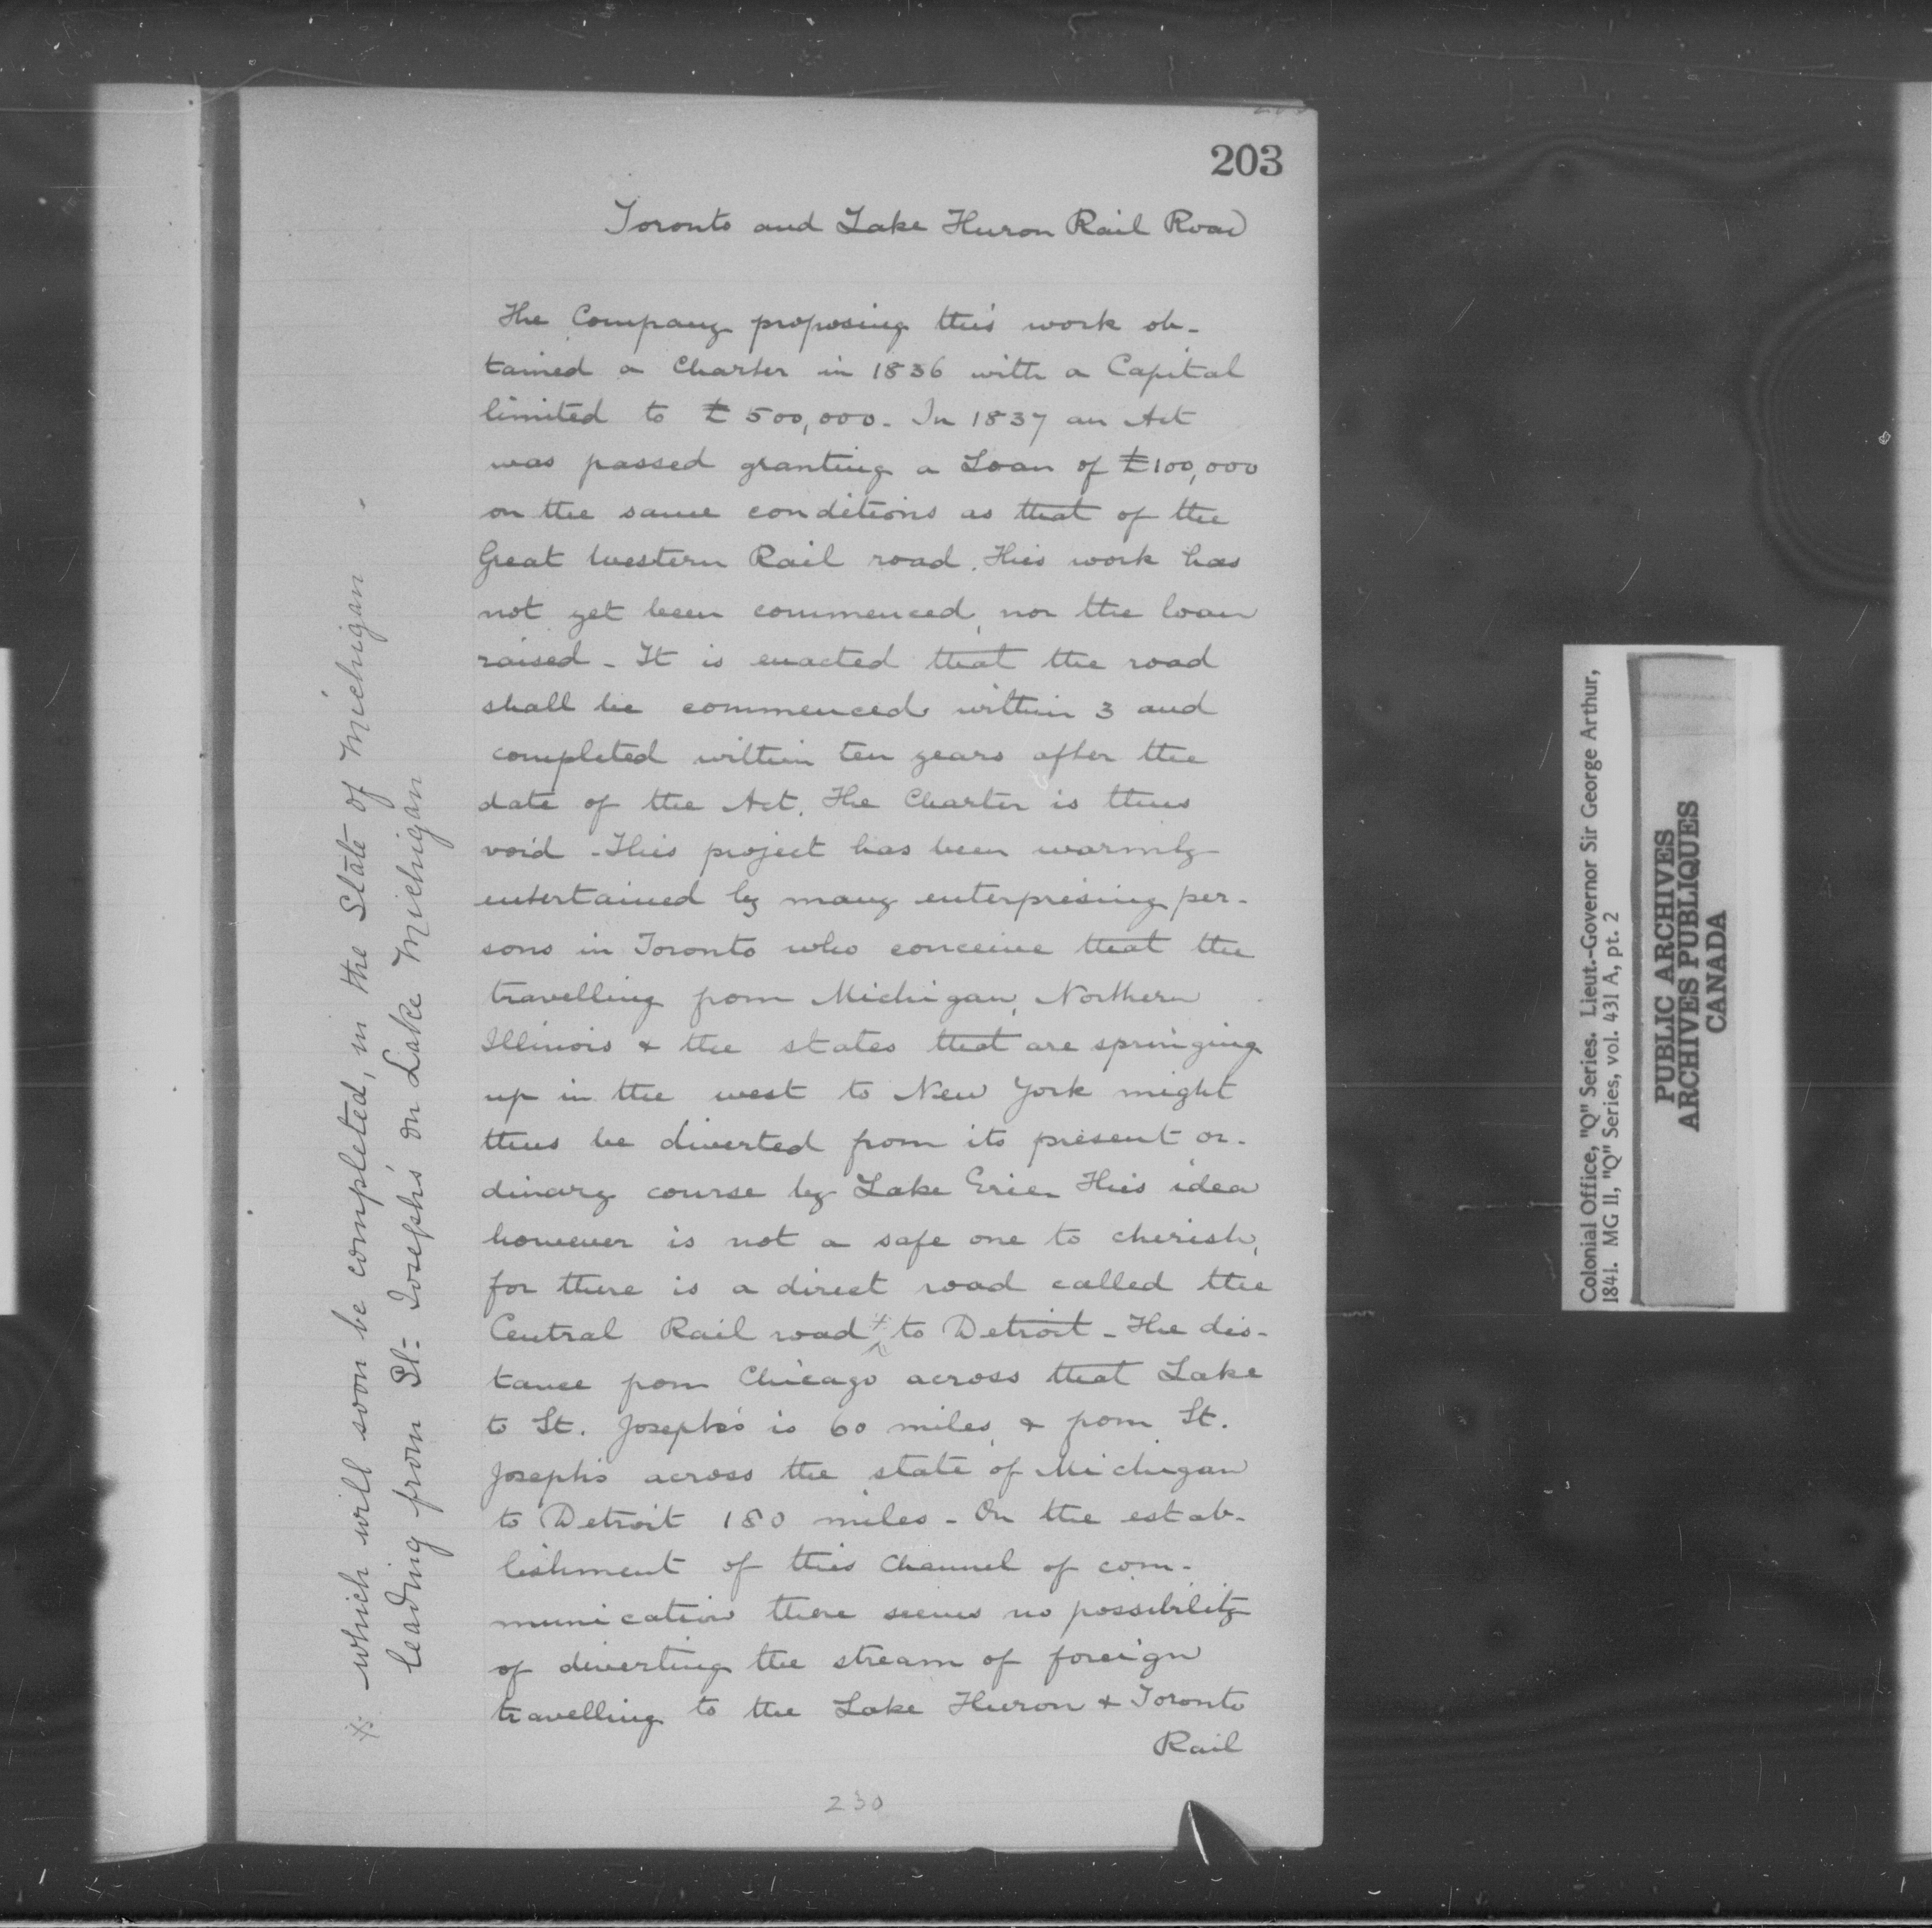 203
Toronto and Lake Huron Rail Road
The Company proposing this work ob-
tained a Charter in 1836 with a Capital
limited to £500,000. In 1837 an Act
was passed granting a Loan of £100,000
on the same conditions as that of the
Great Western Rail road. This work has
not yet been commenced, nor the loan
raised - It is enacted that the road
shall be commenced within 3 and
completed within ten years after the
date of the Act. The Charter is thus
void - This project has been warmly
entertained by many enterprising per-
sons in Toronto who conceive that the
travelling from Michigan, Northern
Illinois & the states that are springing
up in the west to New York might
thus be diverted from its present or-
dinary course by Lake Erie. This idea
however is not a safe one to cherish,
for there is a direct road called the
Central Rail road * to Detroit - The dis-
tance from Chicago across that Lake
to St. Joseph's is 60 miles, & from St.
Joseph's across the state of Michigan
to Detroit 180 miles - On the estab-
lishment of this channel of com-
munication there seems no possibility
of diverting the stream of foreign
travelling to the Lake Huron & Toronto
Rail
230
* which will soon be completed, in the State of Michigan -
leading from St: Joseph's on Lake Michigan
Colonial Office, "Q" Series. Lieut.-Governor Sir George Arthur,
1841. MG 11, "Q" Series, vol. 431 A, pt. 2
PUBLIC ARCHIVES
ARCHIVES PUBLIQUES
CANADA